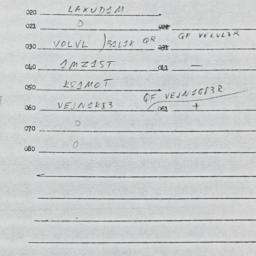 020 LAXUD1M
021 0
030 VOLVL )31L1K QR QF VELVL3R
040 1MZ1ST 041 —
050 K51MOT
060 VEJN1K83 QF VEJN1G83R 061 +
070 0
080 0